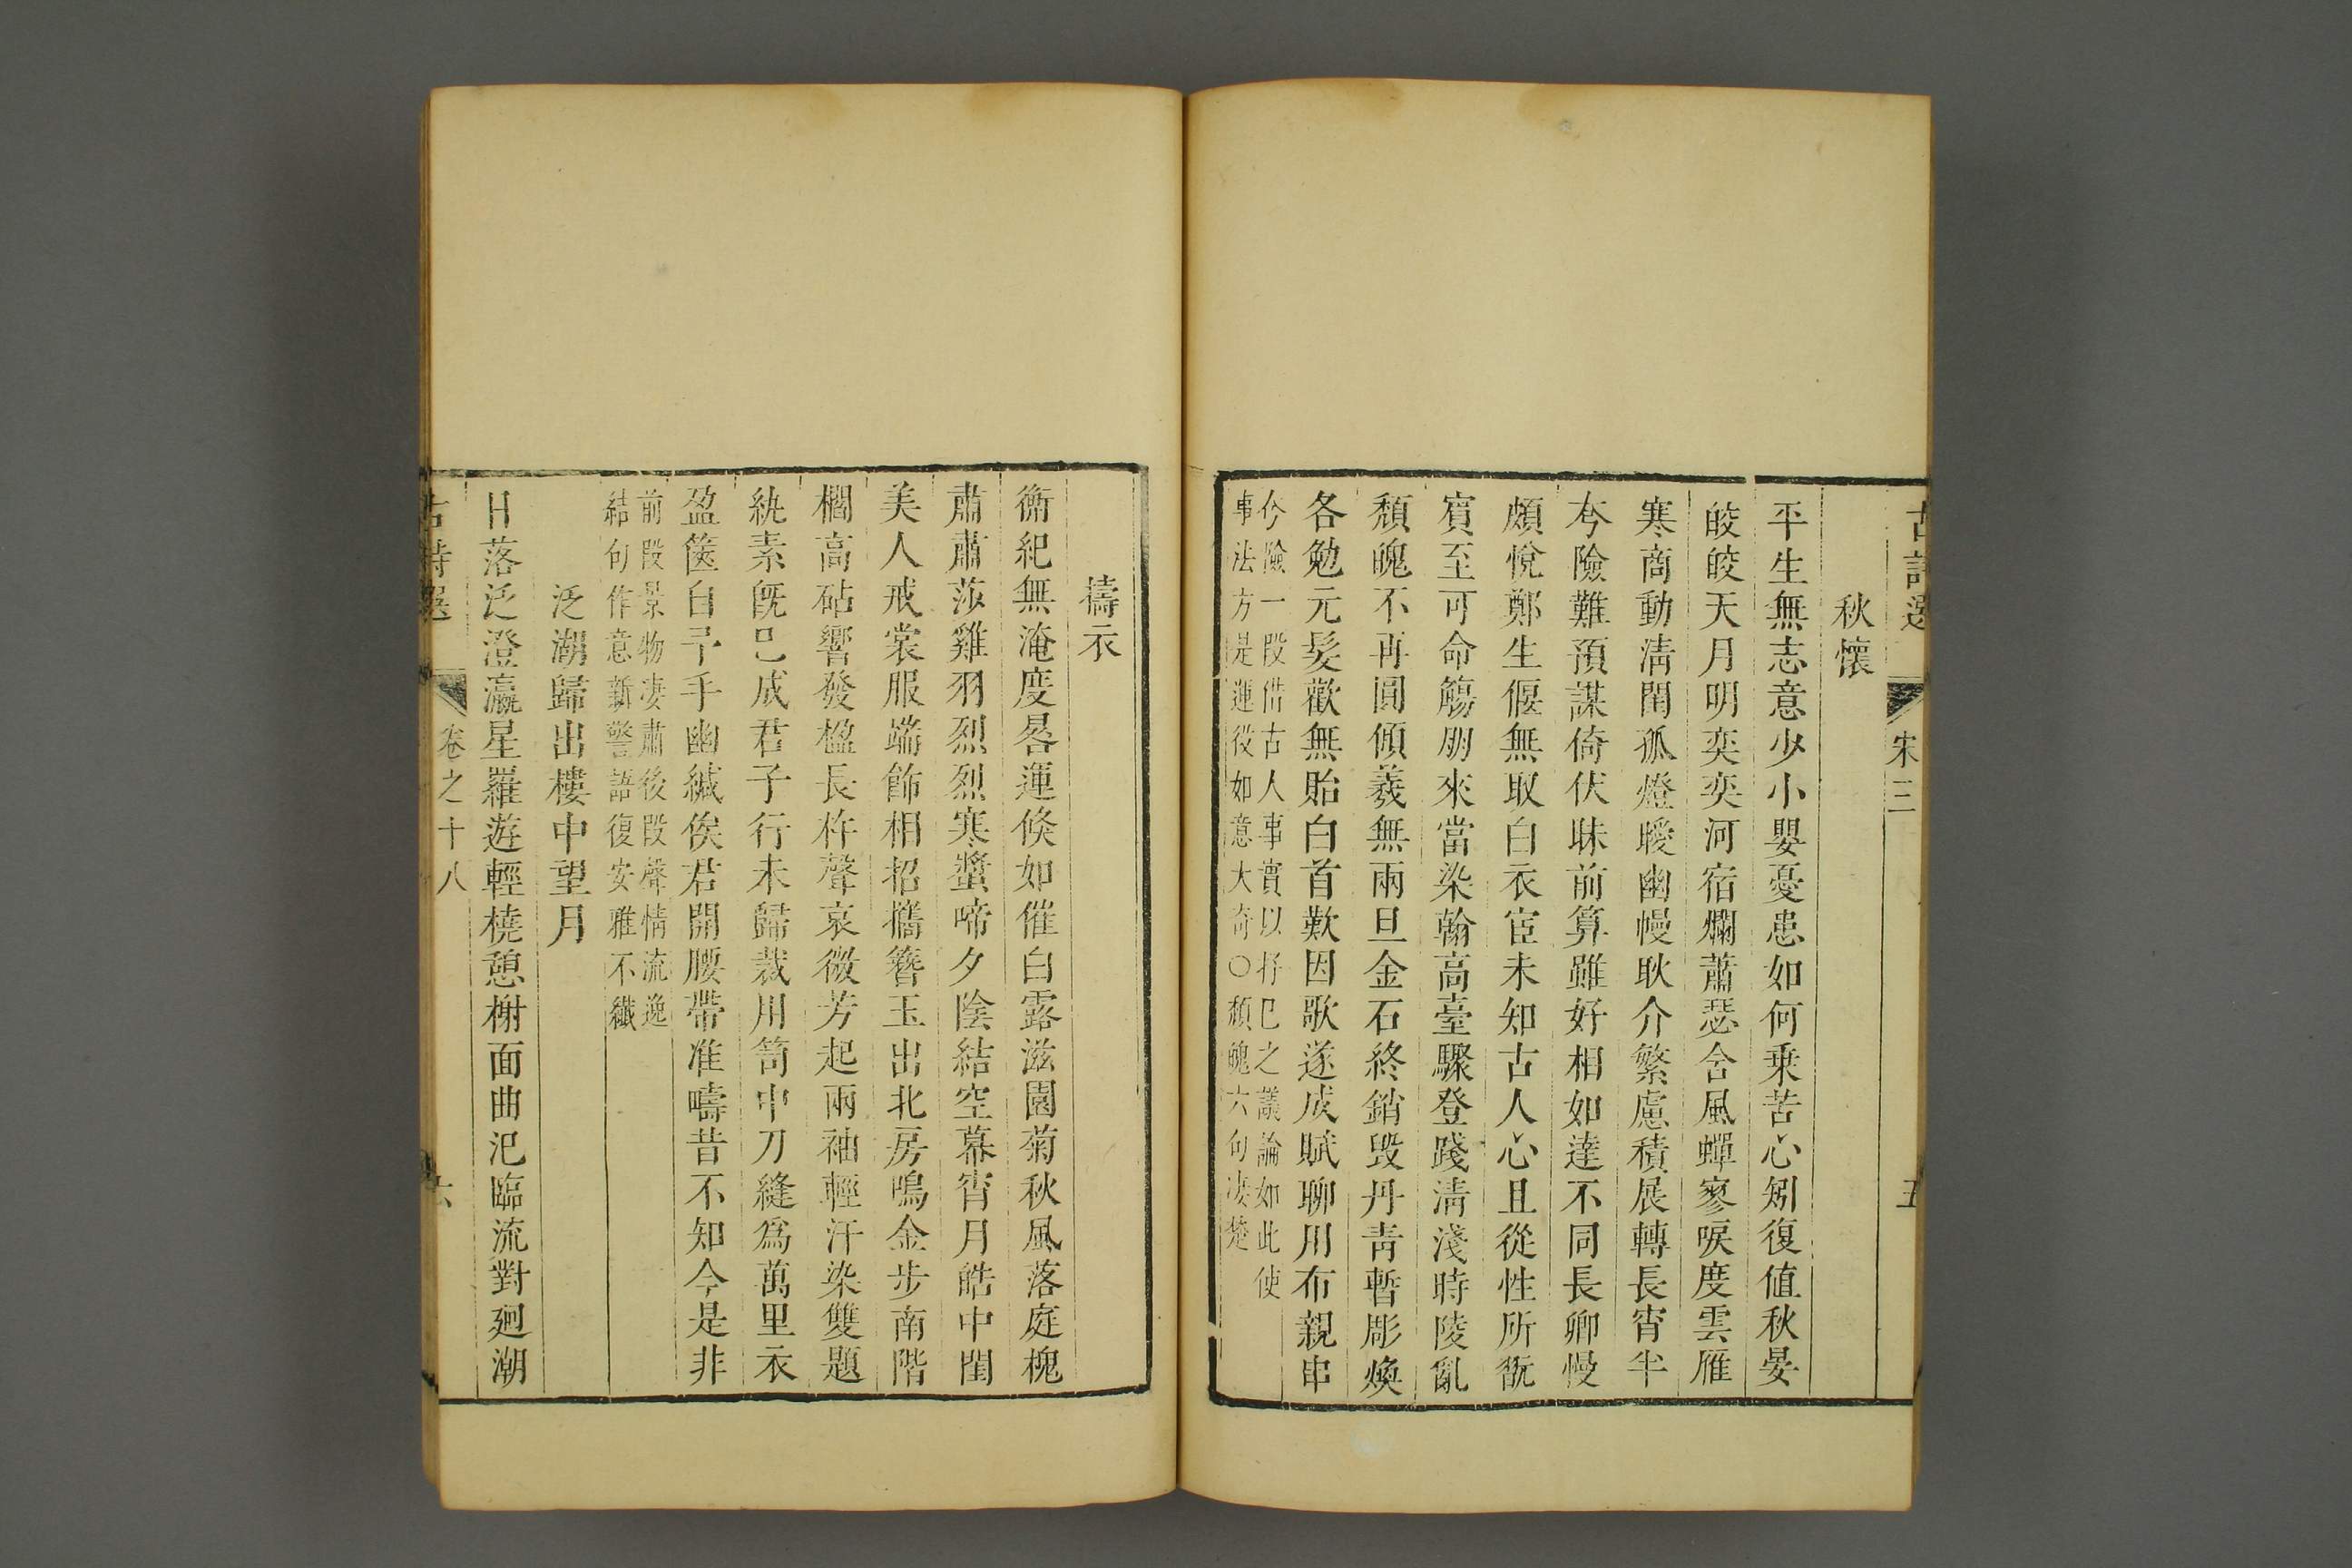 古詩選 宋三 五
秋懷
平生無志意少小嬰憂患如何乗苦心矧復值秋晏
皎皎天月明奕奕河宿爛蕭瑟含風蟬寥唳度雲雁
寒商動淸閨孤燈曖幽幔耿介繁慮積展轉長宵半
夷險難預謀倚伏昧前算雖好相如達不同長卿慢
頗悅鄭生偃無取白衣宦未知古人心且從性所翫
賓至可命觴朋來當染翰高臺驟登踐淸淺時陵亂
頹魄不再圓傾羲無兩旦金石終銷毀丹靑暫彫煥
各勉元髮歡無貽白首歎因歌遂成賦聊用布親串
夷險一段借古人事實以抒已之議論如此使
事法方是運役如意大奇○頹魄六句凄楚
擣衣
衡紀無淹度晷運倏如催白露滋園菊秋風落庭槐
肅肅莎雞羽烈烈寒螿啼夕陰結空幕宵月皓中閨
美人戒裳服端飾相招攜簪玉出北房鳴金步南階
櫩高砧響發楹長杵聲哀微芳起兩袖輕汗染雙題
紈素旣已成君子行未歸裁用笥中刀縫爲萬里衣
盈篋自予手幽緘俟君開腰帶准疇昔不知今是非
前段景物凄肅後段聲情流逸
結句作意新警語復安雅不纎
泛湖歸出樓中望月
日落泛澄瀛星羅遊輕橈憩榭面曲汜臨流對廻潮
古詩選 卷之十八 六